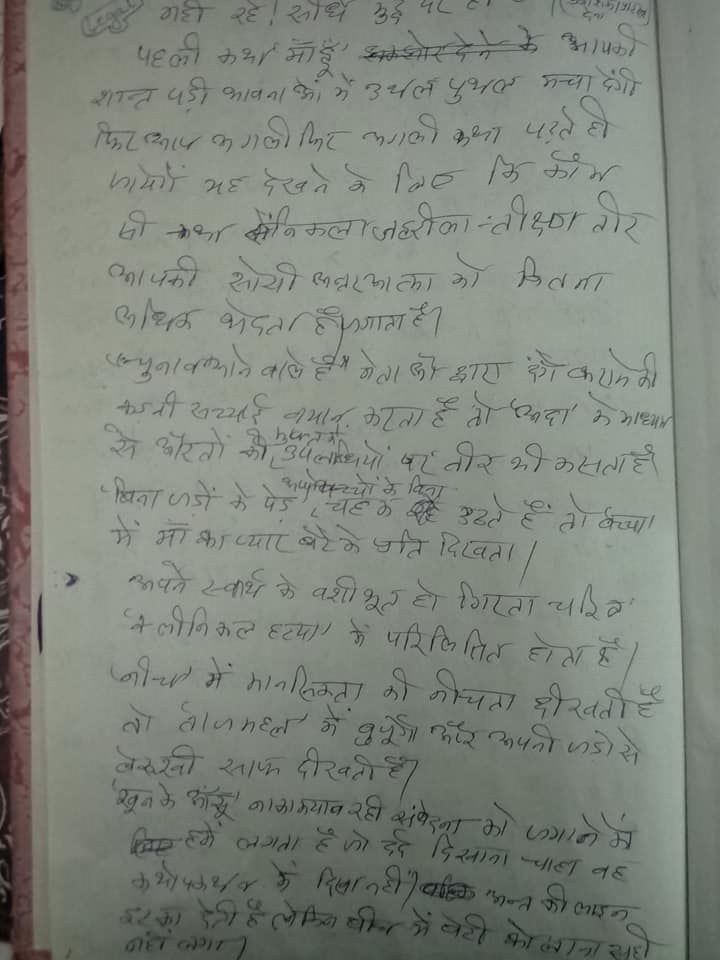 नहीं रहे! सीधे मुद्दे पर
पहली कथा 'माँहूँ' आपकी
शान्त पड़ी भावनाओं में उथल पुथल मच्चा देंगी
फिर आप अगली फिर अगली कथा पढ़ते ही
जायेगें यह देखने के लिए कि कौन
सी कथा से निकला जहरीला -तीक्ष्ण तीर
आपकी सोयी अन्तरआत्मा को कितना
अधिक भेदता है/जगाता है।
चुनाव आने वाले है" नेता को द्वारा दंगे कराने की
कड़वी सच्चाई बयान करता है तो 'अदा' के माध्यम
से औरतों की उपलब्धियों पर तीर भी कसता है
'बिना जड़ों के पेड़' बच्चों के बिना उठते हैं तो 'बच्चा'
में माँ का प्यार बेटे के प्रति दिखता।
अपने स्वार्थ के वशीभूत हो गिरता चरित्र
'क्लीनिकल हत्या' में परिलक्षित होता है।
'नीच' में मानसिकता की नीचता दीखती है
तो 'ताजमहल' में और अपनी जडो से
बेरूखी साफ दीखती है।
'खून के आँसू' नाकामयाब रही संवेदना को जगाने में
हमें लगता है जो दर्द दिखाना चाहा वह
कथोपकथन में दिखा नहीं। अन्त की लाइन
झटका देती है लेकिन बीच में बेटी को लाना सही
नहीं लगा।